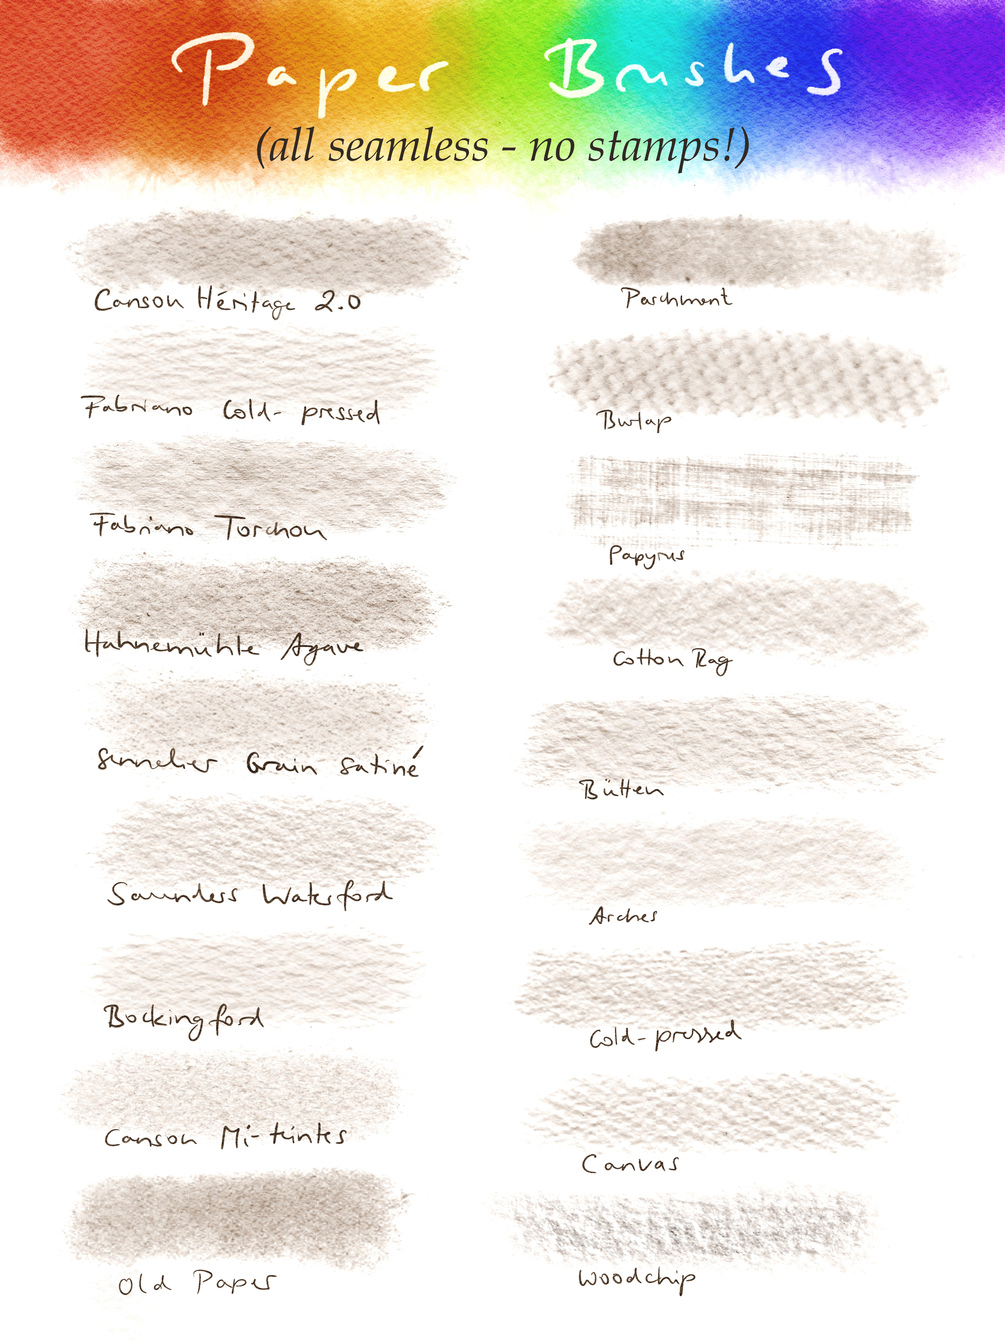 Paper Brushes
(all seamless - no stamps!)
Canson Héritage 2.0
Fabriano Cold-pressed
Fabriano Torchon
Hahnemühle Agave
Sennelier Grain Satiné
Saunders Waterford
Bockingford
Canson Mi-teintes
Old Paper
Parchment
Burlap
Papyrus
Cotton Rag
Bütten
Arches
Cold-pressed
Canvas
Woodchip